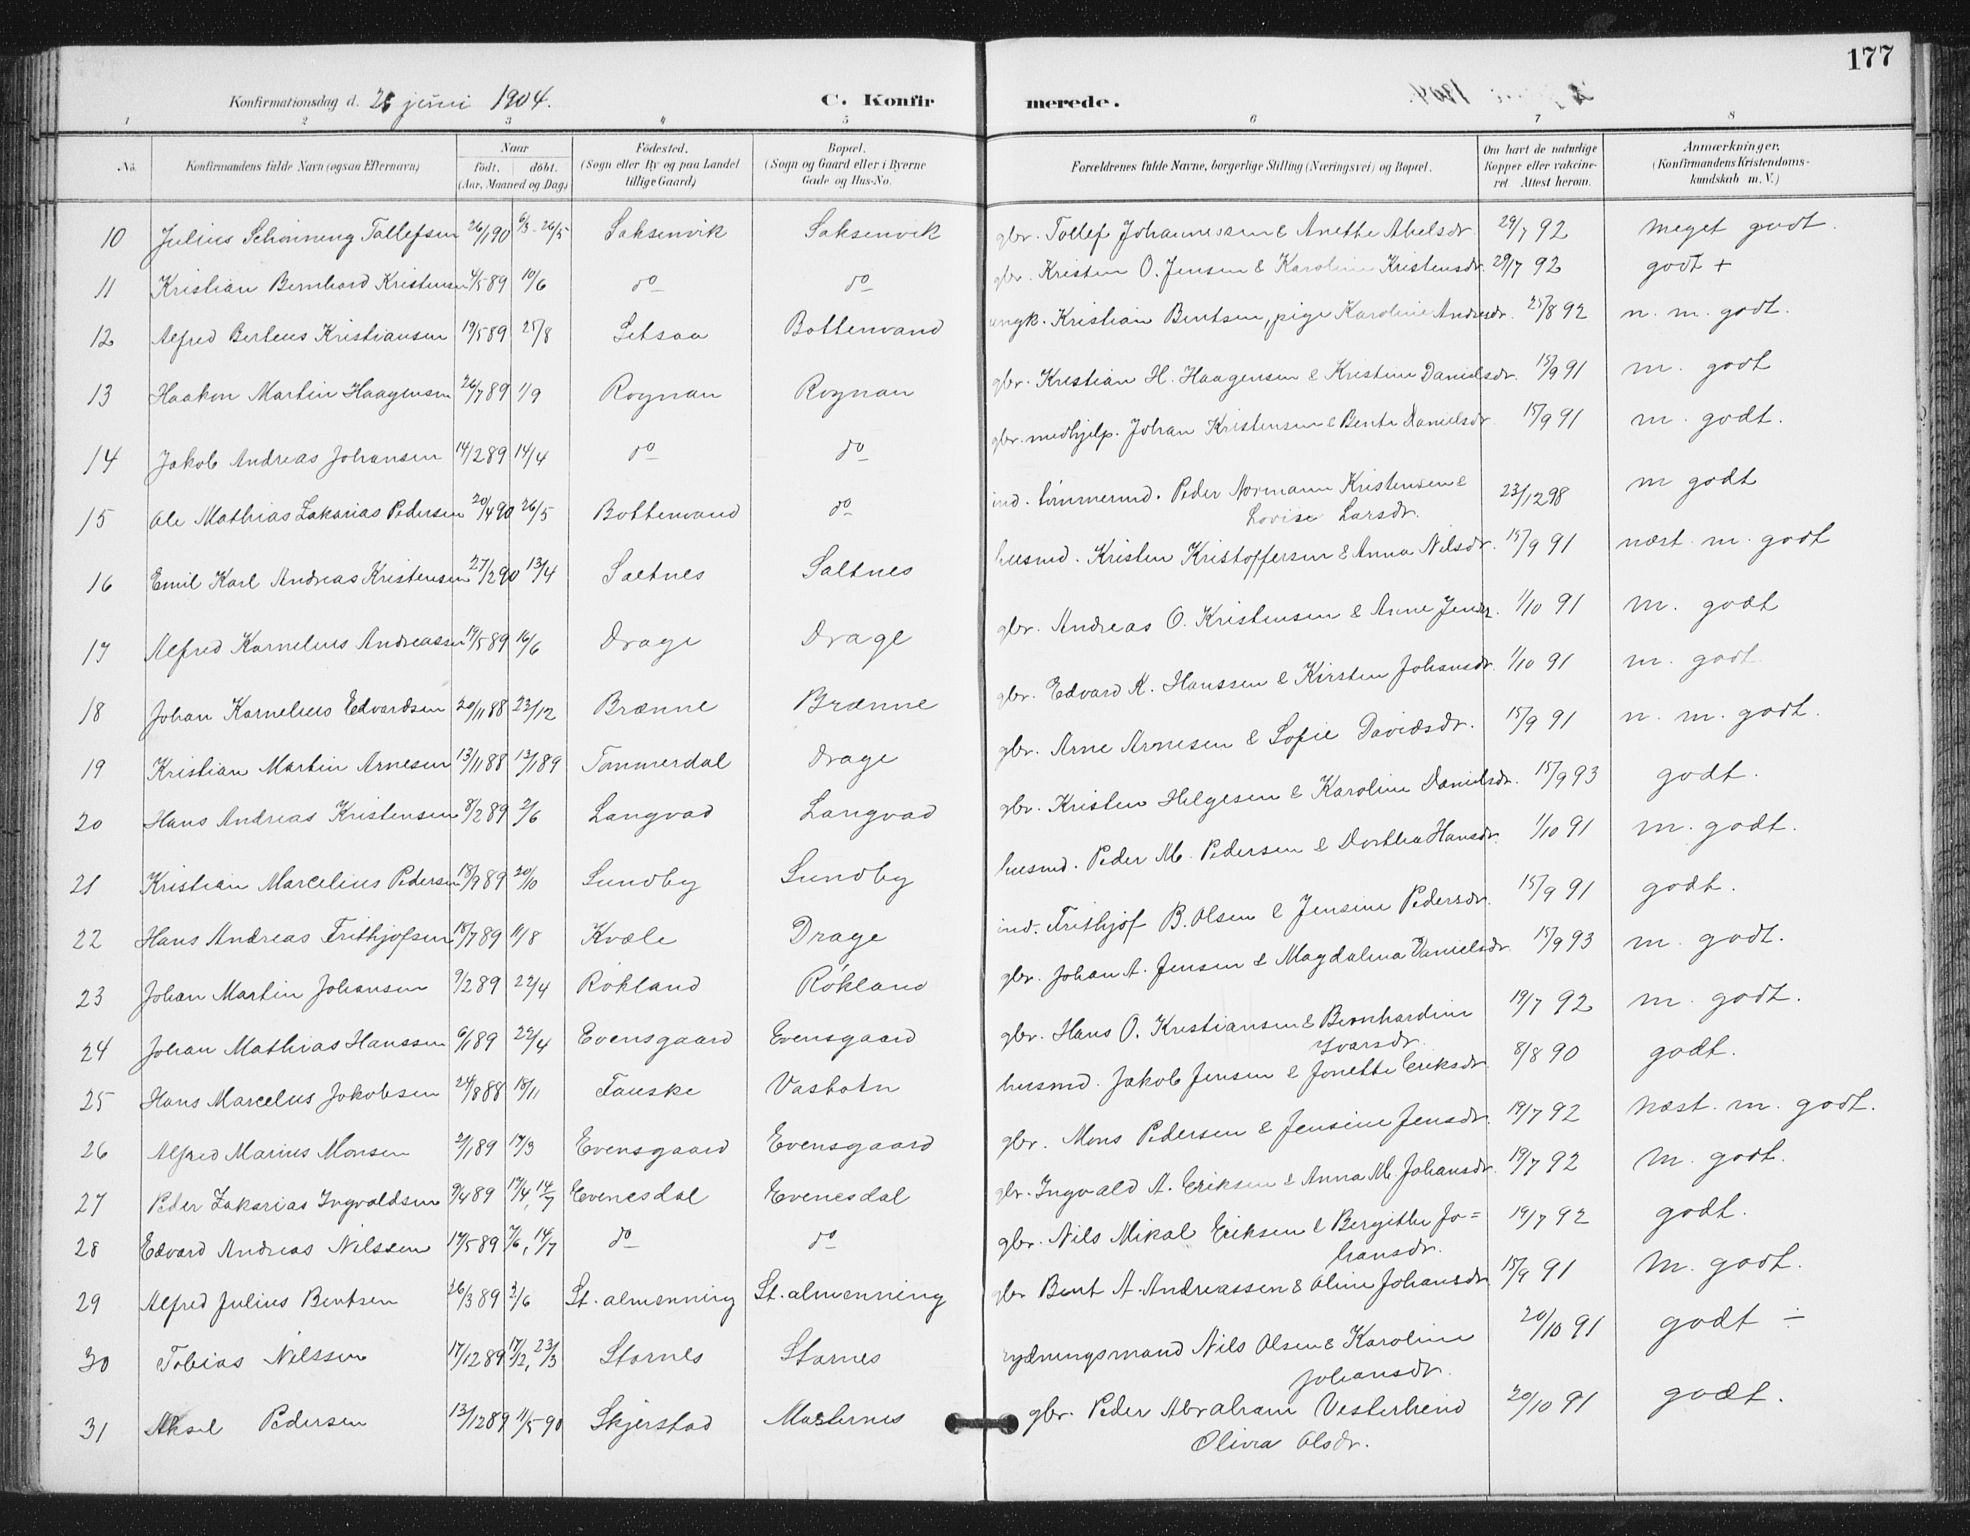 177
Konfirmationsdag d. 26 juni 1904. C. Konfirmerede.
1 2 3 4 5 6 7 8
No. Konfirmandens fulde Navn (ogsaa Efternavn) Naar født. døbt. (Aar, Maaned og Dag) Fødested. (Sogn eller By og paa Landet tillige Gaard) Bopæl. (Sogn og Gaard eller i Byerne Gade og Hus-No. Forældrenes fulde Navne, borgerlige Stilling (Næringsvei) og Bopæl. Om havt de naturlige Kopper eller vakcineret Attest herom. Anmærkninger. (Konfirmandens Kristendomskundskab m. V.)
10 Julius Schønning Tollefsen 26/1 90 6/3 - 26/5 Saksenvik Saksenvik gbr. Tollef Johannessen & Anethe Abelsdr. 29/7 92 meget godt.
11 Kristian Bernhard Kristensen 4/5 89 10/6 do do gbr. Kristen O. Jensen & Karoline Kristensdr. 29/7 92 godt +
12 Alfred Berteus Kristiansen 19/5 89 25/8 Setsaa Bottenvand ungk. Kristian Bentsen, pige Karoline Andrsdr. 25/8 92 n. m. godt.
13 Haakon Martin Haagensen 26/7 89 1/9 Rognan Rognan gbr. Kristian H. Haagensen & Kristine Danielsdr. 15/9 91 m. godt
14 Jakob Andreas Johansen 14/2 89 14/4 do do gbr. medhjelp. Johan Kristensen & Bente Danielsdr 15/9 91 m. godt.
15 Ole Mathias Zakarias Pedersen 20/4 90 26/5 Bottenvand do ind. tømmermd. Peder Normann Kristensen & Lovise Larsdr. 23/12 98 m godt
16 Emil Karl Andreas Kristensen 27/2 90 13/4 Saltnes Saltnes husmd. Kristen Kristoffersen & Anna Nilsdr. 15/9 91 næst m. godt
17 Alfred Kornelius Andreassen 19/5 89 16/6 Drage Drage gbr. Andreas O. Kristensen & Anne Jensdr 1/10 91 m. godt
18 Johan Kornelius Edvardsen 20/11 88 23/12 Brænne Brænne gbr. Edvard K. Hanssen & Kirsten Johansdr. 1/10 91 m. godt
19 Kristian Martin Arnesen 13/11 88 13/1 89 Tømmerdal Drage gbr. Arne Arnesen & Sofie Davidsdr. 15/9 91 n. m. godt.
20 Hans Andreas Kristensen 8/2 89 2/6 Langvad Langvad gbr. Kristen Helgesen & Karoline Danielsdr. 15/9 93 godt.
21 Kristian Marcelius Pedersen 18/9 89 20/10 Sundby Sundby husmd. Peder M. Pedersen & Dorthea Hansdr. 1/10 91 m. godt.
22 Hans Andreas Frithjofsen 15/7 89 11/8 Kvæle Drage ind. Frithjof B. Olsen & Jensine Pedersdr. 15/9 91 godt.
23 Johan Martin Johansen 9/2 89 22/4 Røkland Røkland gbr. Johan A. Jensen & Magdalena Danielsdr. 15/9 93 m. godt.
24 Johan Mathias Hanssen 6/1 89 22/4 Evensgaard Evensgaard gbr. Hans O. Kristiansen & Bernhardine Ivarsdr. 19/7 92 m. godt.
25 Hans Marcelus Jakobsen 24/8 88 18/11 Fauske Vasbotn husmd. Jakob Jensen & Jonette Eriksdr. 8/8 90 godt.
26 Alfred Marius Monsen 2/1 89 17/3 Evensgaard Evensgaard gbr. Mons Pedersen & Jensine Jensdr. 19/7 92 næst. m. godt.
27 Peder Zakarias Ingvaldsen 9/4 89 17/4, 14/7 Evenesdal Evenesdal gbr. Ingvald A. Eriksen & Anna M. Johansdr. 19/7 92 m. godt.
28 Edvard Andreas Nilssen 17/5 89 7/6, 14/7 do do gbr. Nils Mikal Eriksen & Bergithe Johansdr. 19/7 92 godt.
29 Alfred Julius Bentsen 26/3 89 2/6 St. almenning St. almenning gbr Bent A. Andreassen & Oline Johansdr 15/9 91 m. godt.
30 Tobias Nilssen 17/12 89 17/12, 23/3 Stornes Stornes rydningsmand Nils Olsen & Karoline Johansdr. 20/10 91 godt ÷
31 Aksel Pedersen 13/12 89 11/5 90 Skjerstad Mosternes gbr. Peder Abraham Vesterhend Olivia Olsdr. 20/10 91 godt.